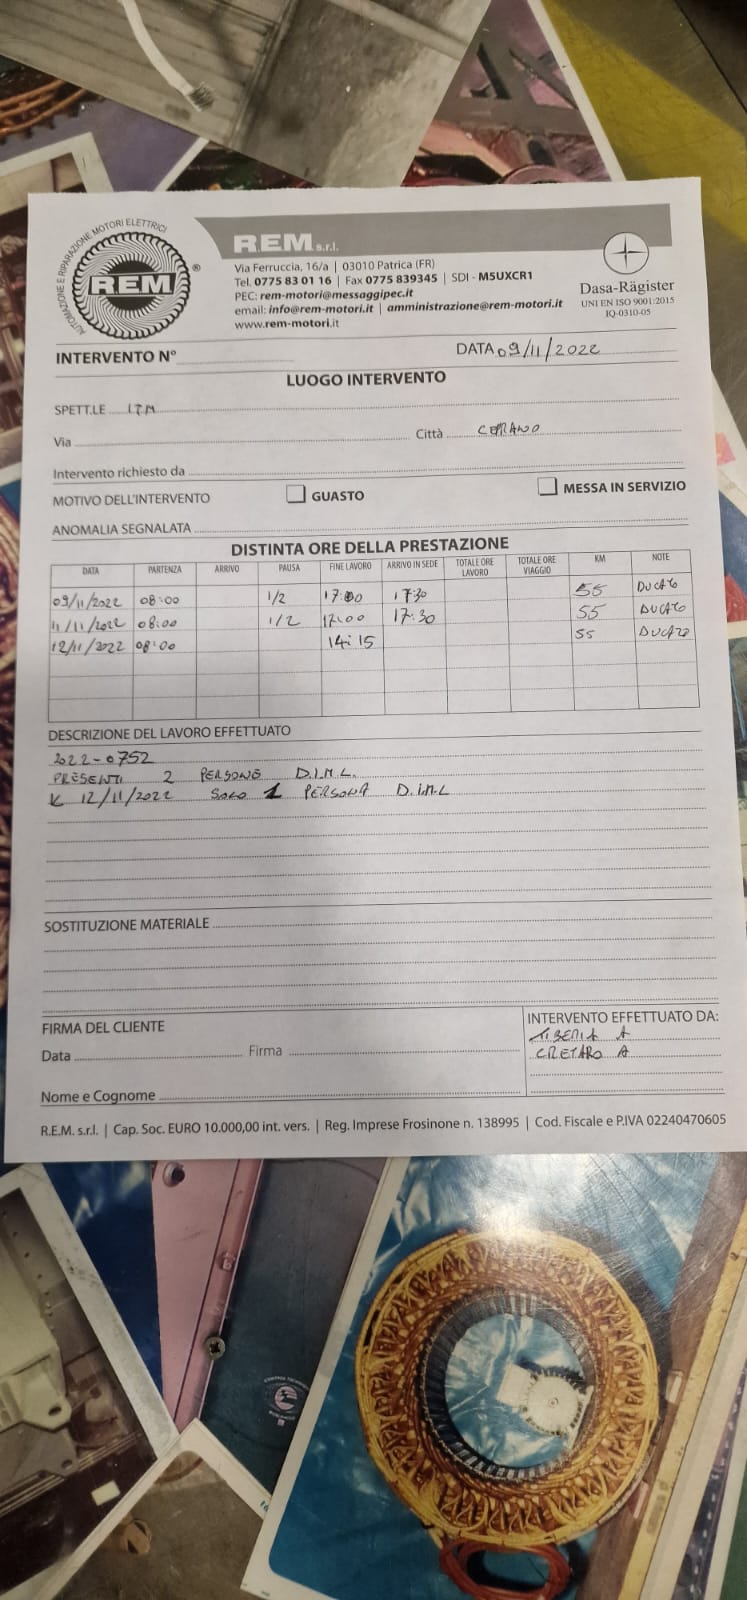 AUTOMAZIONE E RIPARAZIONE MOTORI ELETTRICI
REM ®
REM s.r.l.
Via Ferruccia, 16/a | 03010 Patrica (FR)
Tel. 0775 83 01 16 | Fax 0775 839345 | SDI - M5UXCR1
PEC: rem-motori@messaggipec.it
email: info@rem-motori.it | amministrazione@rem-motori.it
www.rem-motori.it
Dasa-Rägister
UNI EN ISO 9001:2015
IQ-0310-05
INTERVENTO N° DATA 09/11/2022
LUOGO INTERVENTO
SPETT.LE ITM
Via Città CEPRANO
Intervento richiesto da
MOTIVO DELL'INTERVENTO GUASTO MESSA IN SERVIZIO
ANOMALIA SEGNALATA
DISTINTA ORE DELLA PRESTAZIONE
DATA PARTENZA ARRIVO PAUSA FINE LAVORO ARRIVO IN SEDE TOTALE ORE LAVORO TOTALE ORE VIAGGIO KM NOTE
09/11/2022 08:00 1/2 17:00 17:30 55 DUCATO
11/11/2022 08:00 1/2 17:00 17:30 55 DUCATO
12/11/2022 08:00 14:15 55 DUCATO
DESCRIZIONE DEL LAVORO EFFETTUATO
2022-0752
PRESENTI 2 PERSONE D.I.M.L.
12/11/2022 SOLO 1 PERSONA D.I.M.L
SOSTITUZIONE MATERIALE
FIRMA DEL CLIENTE
Data Firma
Nome e Cognome
INTERVENTO EFFETTUATO DA:
TIBERIA A
CRETARO A
R.E.M. s.r.l. | Cap. Soc. EURO 10.000,00 int. vers. | Reg. Imprese Frosinone n. 138995 | Cod. Fiscale e P.IVA 02240470605